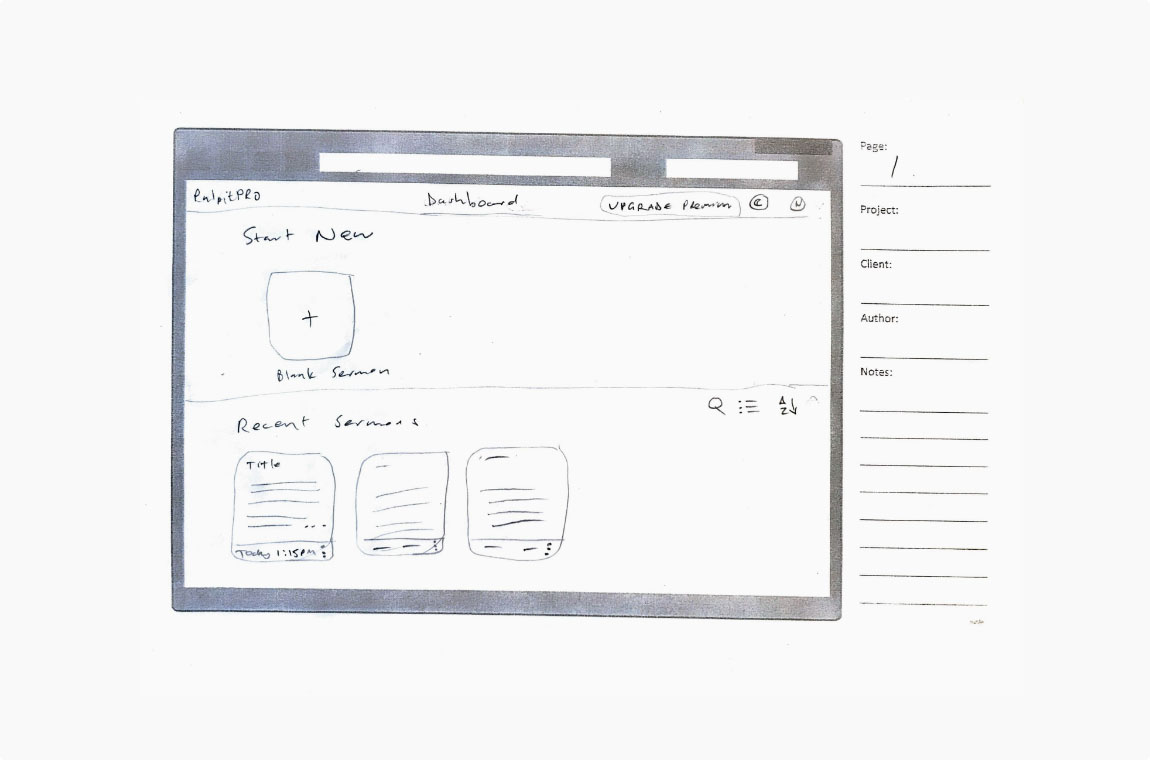 PulpitPRO Dashboard UPGRADE Premium
Start New
+
Blank Sermon
Recent Sermons
A
Z
Title
...
Today 1:15PM
Page:
1
Project:
Client:
Author:
Notes: